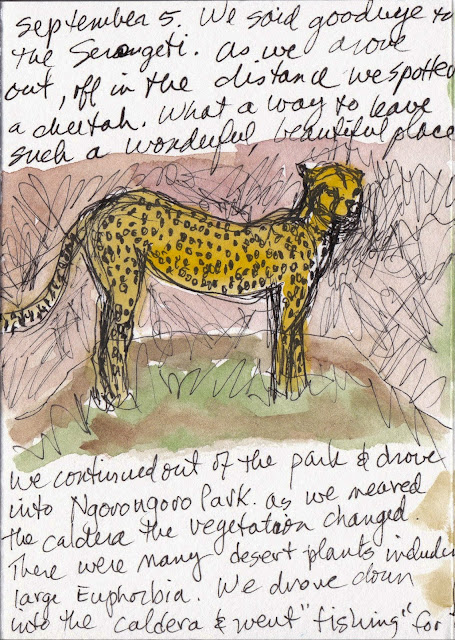 september 5. We said goodbye to
the Serengeti. As we drove
out, off in the distance we spotted
a cheetah. What a way to leave
such a wonderful, beautiful place
We continued out of the park & drove
into Ngorongoro Park. as we neared
the caldera the vegetation changed.
There were many desert plants includin
large Euphorbia. We drove down
into the caldera & went "fishing" for